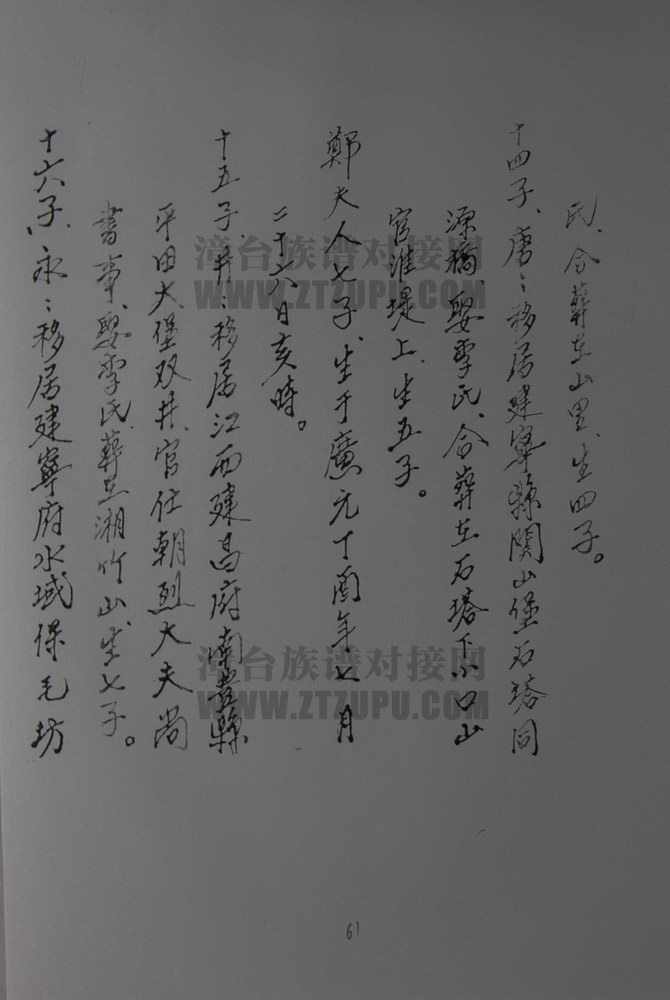 氏、合葬在山里、生四子。
十四子、唐〻移居建寧縣関山堡石塔同
源橋、娶李氏、合葬在石塔下小口山
官淮堤上、生五子。
鄭夫人七子、生于廣元丁酉年七月
二十六日亥時。
十五子、井〻移居江西建昌府南豊縣
平田大堡双井、官仕朝烈大夫尚
書事、娶李氏、葬在湘竹山、生七子。
十六子、永〻移居建寧府水域保毛坊
漳台族谱对接网
WWW.ZTZUPU.COM
漳台族谱对接网
WWW.ZTZUPU.COM
61